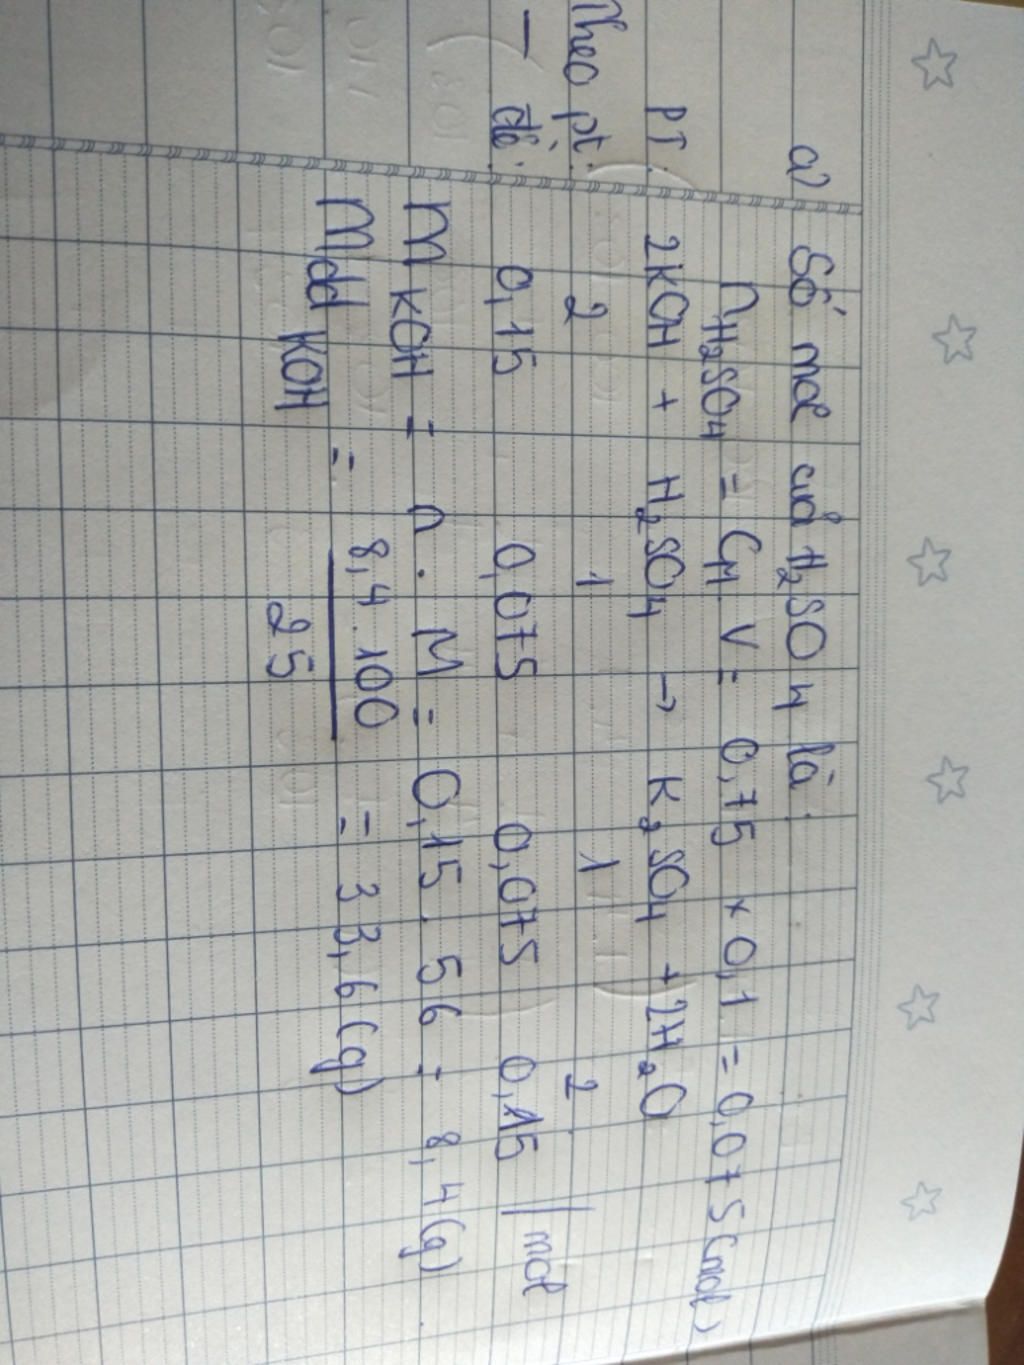 a) Số mol của H₂SO₄ là:
nH₂SO₄ = CM. V = 0,75 × 0,1 = 0,075 (mol)
PT: 2KOH + H₂SO₄ → K₂SO₄ + 2H₂O
Theo pt: 2 1 1 2
— đề: 0,15 0,075 0,075 0,15 | mol
m KOH = n . M = 0,15 . 56 = 8,4 (g)
mdd KOH = 8,4 . 100 / 25 = 33,6 (g)